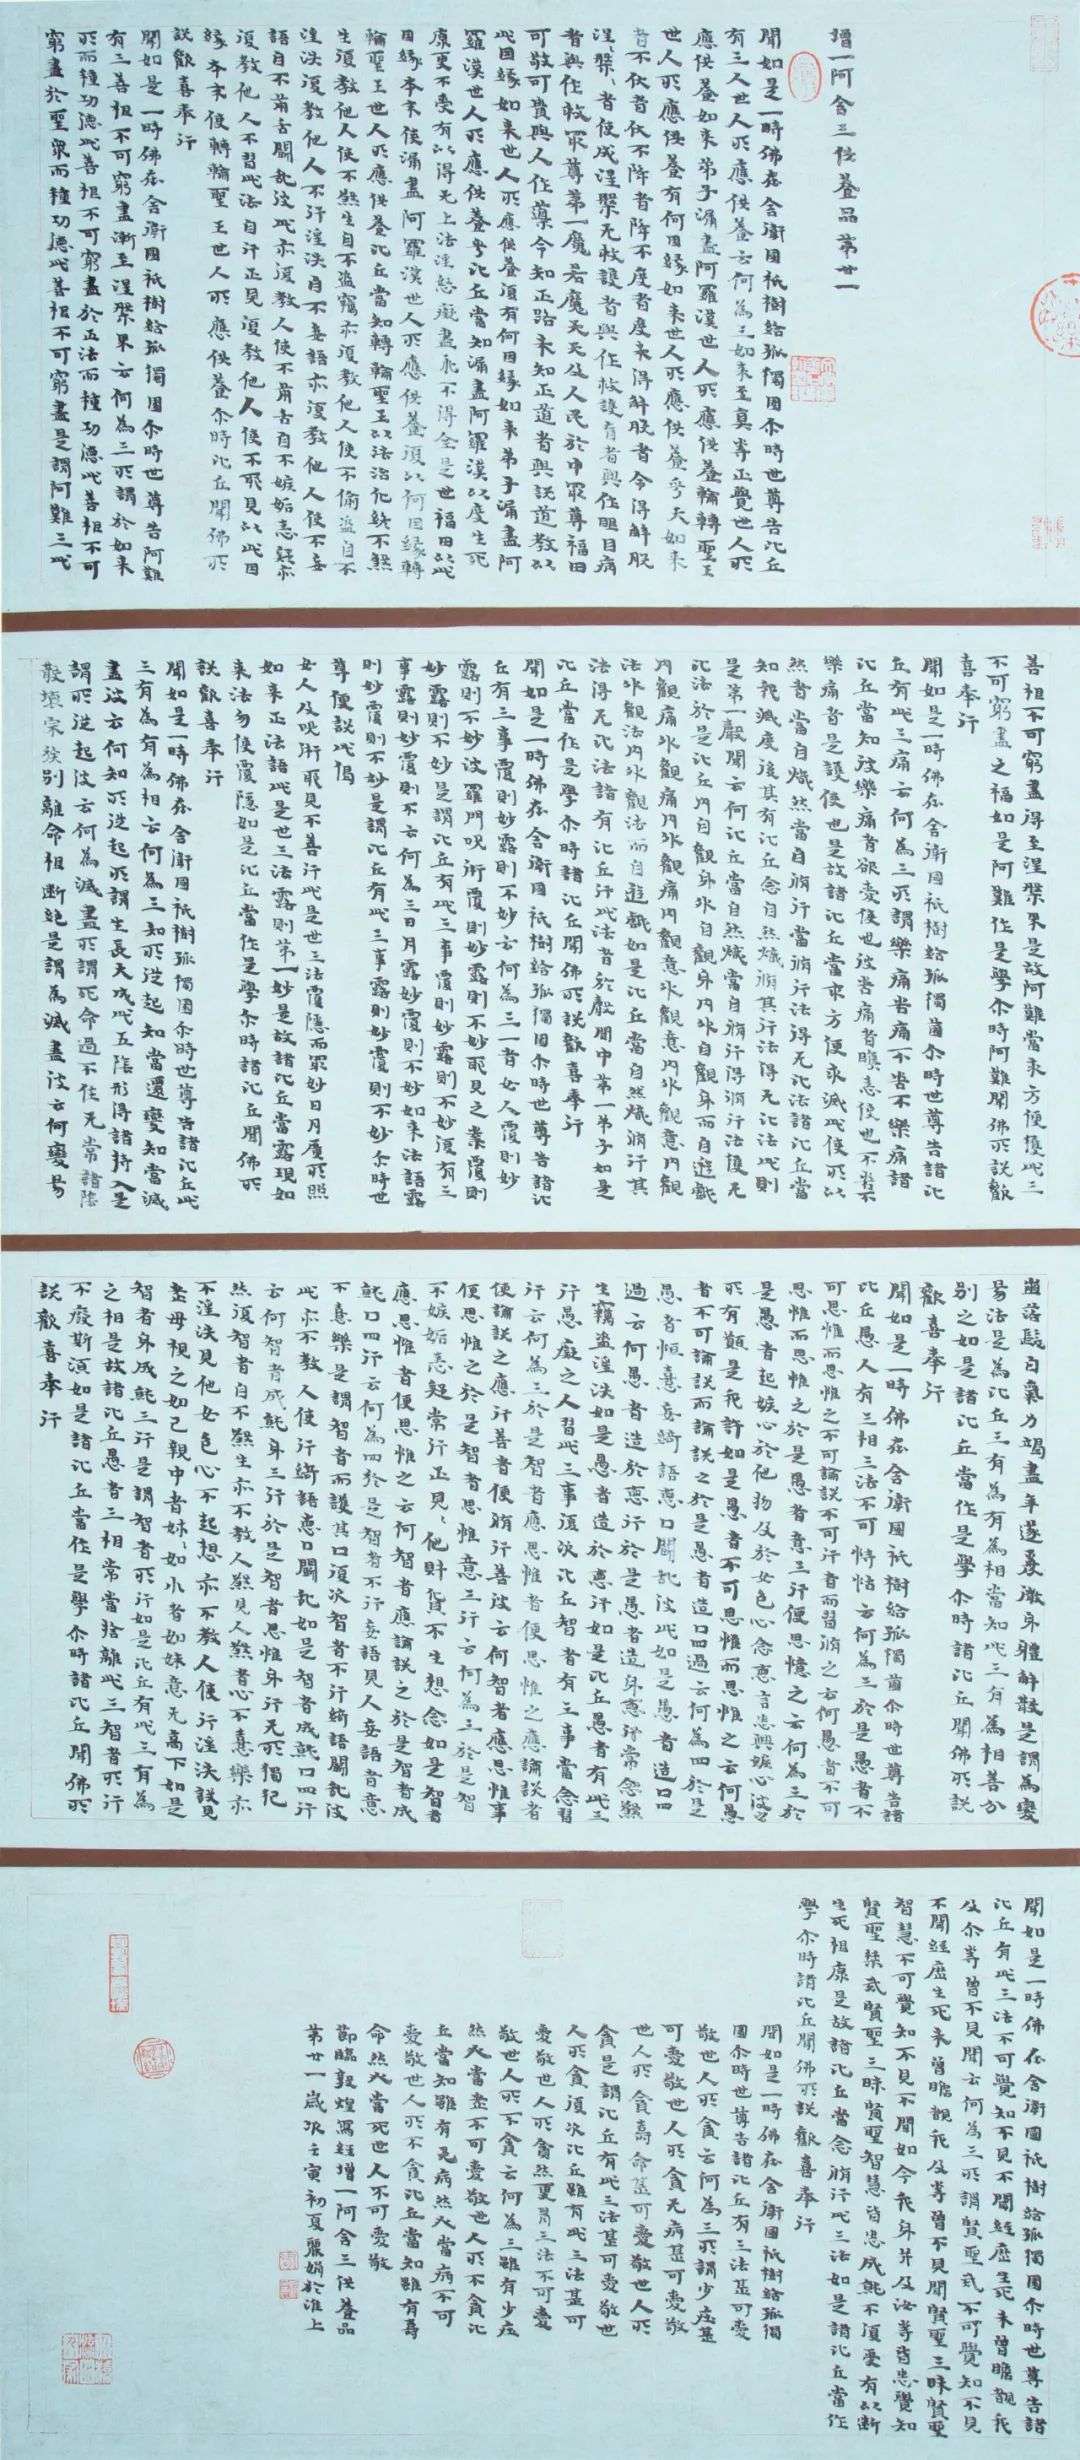 增一阿含三供養品第廿一
聞如是一時佛在舍衛國祇樹給孤獨園尒時世尊告比丘
有三人世人所應供養云何為三如来至真等正覺世人所
應供養如来弟子漏盡阿羅漢世人所應供養輪轉聖王
世人所應供養有何因緣如来世人所應供養乎夫如来
者不伏者伏不降者降不度者度未得解脫者令得解脫
涅槃者使成涅槃无救護者與作救護盲者與作眼目病
者與作救眾尊第一魔若魔天天及人民於中眾尊福田
可敬可貴與人作導令知正路未知正道者與説道教以
此因緣如来世人所應供養復有何因緣如来弟子漏盡阿
羅漢世人所應供養乎比丘當知漏盡阿羅漢以度生死
原更不受有以得无上法淫怒癡盡永不得全是世福田以此
因緣本末使漏盡阿羅漢世人所應供養復以何因緣轉
輪聖王世人所應供養比丘當知轉輪聖王以法治化終不煞
生復教他人使不煞生自不盜竊亦復教他人使不偷盜自不
淫泆復教他人不行淫泆自不妄語亦復教他人使不妄
語自不兩舌鬪乱彼此亦復教人使不兩舌自不嫉妬恚疑亦
復教他人不習此法自行正見復教他人使不耶見以此因
緣本末使轉輪聖王世人所應供養尒時比丘聞佛所
説歡喜奉行
聞如是一時佛在舍衛國祇樹給孤獨園尒時世尊告阿難
有三善根不可窮盡漸至涅槃界云何為三所謂於如来
所而種功德此善根不可窮盡於正法而種功德此善根不可
窮盡於聖眾而種功德此善根不可窮盡是謂阿難三此
善根不可窮盡得至涅槃界是故阿難當求方便獲此三
不可窮盡之福如是阿難作是學尒時阿難聞佛所説歡
喜奉行
聞如是一時佛在舍衛國祇樹給孤獨薗尒時世尊告諸比
丘有此三痛云何為三所謂樂痛苦痛不苦不樂痛諸
比丘當知彼樂痛者欲愛使也彼苦痛者瞋恚使也不苦不
樂痛者是護使也是故諸比丘當求方便求滅此使所以
然者當自熾然當自脩行當脩行法得无比法諸比丘當
知我滅度後其有比丘念自然熾脩其行法得无比法此則
是第一聲聞云何比丘當自然熾當自脩行得脩行法獲无
比法於是比丘内自觀身外自觀身内外自觀身而自遊戲
内觀痛外觀痛内外觀痛内觀意外觀意内外觀意内觀
法外觀法内外觀法而自遊戲如是比丘當自然熾脩行其
法得无比法諸有比丘行此法者於聲聞中第一弟子如是
比丘當作是學尒時諸比丘聞佛所説歡喜奉行
聞如是一時佛在舍衛國祇樹給孤獨園尒時世尊告諸比
丘有三事覆則妙露則不妙云何為三一者女人覆則妙
露則不妙婆羅門呪術覆則妙露則不妙耶見之業覆則
妙露則不妙是謂比丘有此三事覆則妙露則不妙復有三
事露則妙覆則不云何為三日月露妙覆則不妙如来法語露
則妙覆則不妙是謂比丘有此三事露則妙覆則不妙尒時世
尊便説此偈
女人及呪術耶見不善行此是世三法覆隱而眾妙日月廣所照
如来正法語此是世三法露則第一妙是故諸比丘當露現如
来法勿使覆隱如是比丘當作是學尒時諸比丘聞佛所
説歡喜奉行
聞如是一時佛在舍衛國祇樹孤獨園尒時世尊告諸比丘此
三有為有為相云何為三知所從起知當還變知當滅
盡彼云何知所從起所謂生長大成此五陰形得諸持入是
謂所從起彼云何為滅盡所謂死命過不住无常諸陰
散壞宗族別離命根斷絕是謂為滅盡彼云何變易
齒落髮白氣力竭盡年遂衰微身體解散是謂為變
易法是為比丘三有為有為相當知此三有為相善分
别之如是諸比丘當作是學尒時諸比丘聞佛所説
歡喜奉行
聞如是一時佛在舍衛國祇樹給孤獨薗尒時世尊告諸
比丘愚人有三相三法不可恃怙云何為三於是愚者不
可思惟而思惟之不可論説不可行者而習脩之云何愚者不可
思惟而思惟之於是愚者意三行便思憶之云何為三於
是愚者起嫉心於他物及於女色心念惡言恚興嫉心彼之
所有願是我許如是愚者不可思惟而思惟之云何愚
者不可論説而論説之於是愚者造口四過云何為四於是
愚者恒憙妄綺語惡口鬪乱彼此如是愚者造口四
過云何愚者造於惡行於是愚者造身惡行常念煞
生竊盜淫泆如是愚者造於惡行如是比丘愚者有此三
行愚癡之人習此三事復次比丘智者有三事當念習
行云何為三於是智者應思惟者便思惟之應論説者
便論説之應行善者便脩行善彼云何智者應思惟事
便思惟之於是智者思惟意三行云何為三於是智
不嫉妬恚疑常行正見見他財貨不生想念如是智者
應思惟者便思惟之云何智者應論説之於是智者成
就口四行云何為四於是智者不行妄語見人妄語者意
不憙樂是謂智者而護其口復次智者不行綺語鬪乱彼
此亦不教人使行綺語惡口鬪乱如是智者成就口四行
云何智者成就身三行於是智者思惟身行无所獨犯
然復智者自不煞生亦不教人煞見人煞者心不憙樂亦
不淫泆見他女色心不起想亦不教人使行淫泆設見
老母視之如己親中者姊姊如小者如妹意无高下如是
智者身成就三行是謂智者所行如是比丘有此三有為
之相是故諸比丘愚者三相常當捨離此三智者所行
不癈斯須如是諸比丘當作是學尒時諸比丘聞佛所
説歡喜奉行
聞如是一時佛在舍衛國祇樹給孤獨園尒時世尊告諸
比丘有此三法不可覺知不見不聞經歷生死未曾瞻覩我
及尒等曾不見聞云何為三所謂賢聖戒不可覺知不見
不聞經歷生死未曾瞻覩我及等曾不見聞賢聖三昧賢聖
智慧不可覺知不見不聞如今我身并及汝等皆悉覺知
賢聖禁戒賢聖三昧賢聖智慧皆悉成就不復受有以斷
生死根原是故諸比丘當念脩行此三法如是諸比丘當作
學尒時諸比丘聞佛所説歡喜奉行
聞如是一時佛在舍衛國祇樹給孤獨
園尒時世尊告諸比丘有三法甚可愛
敬世人所貪云何為三所謂少庄甚
可愛敬世人所貪无病甚可愛敬
世人所貪壽命甚可愛敬世人所
貪是謂比丘有此三法甚可愛敬世
人所貪復次比丘雖有此三法甚可
愛敬世人所貪然更有三法不可愛
敬世人所不貪云何為三雖有少庄
然必當老不可愛敬世人所不貪比
丘當知雖有无病然必當病不可
愛敬世人所不貪比丘當知雖有壽
命然必當死世人不可愛敬
節臨敦煌寫經增一阿含三供養品
第廿一歲次壬寅初夏麗娟於淮上